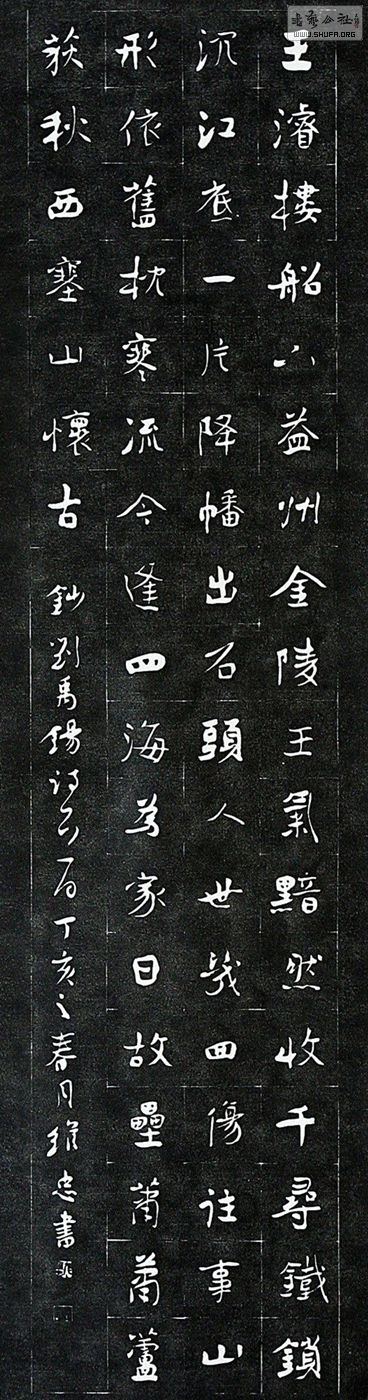 王濬樓船下益州金陵王氣黯然收千尋鐵鎖
沉江底一片降幡出石頭人世幾回傷往事山
形依舊枕寒流今逢四海為家日故壘蕭蕭蘆
荻秋西塞山懷古
鈔劉禹錫詩
丁亥之春月維忠書
WWW.SHUFA.ORG